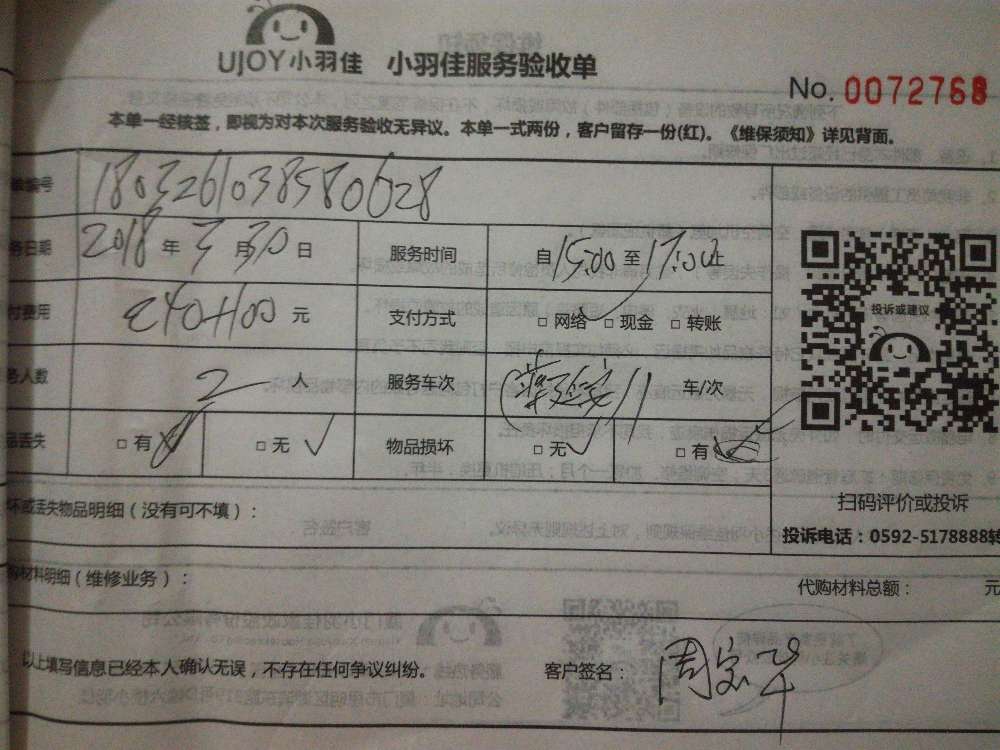 UJOY小羽佳 小羽佳服务验收单
No. 0072768
本单一经核签，即视为对本次服务验收无异议。本单一式两份，客户留存一份(红)。《维保须知》详见背面。
编号 1803261038580628
务日期 2018 年 3 月 30 日 服务时间 自 15:00 至 17:00 止
付费用 240+100 元 支付方式 □ 网络 □ 现金 □ 转账
投诉或建议
务人数 2 人 服务车次 车/次
品丢失 □ 有 □ 无 ✓ 物品损坏 □ 无 ✓ □ 有
扫码评价或投诉
坏或丢失物品明细（没有可不填）：
投诉电话：0592-5178888转
购材料明细（维修业务）：
代购材料总额： 元
以上填写信息已经本人确认无误，不存在任何争议纠纷。 客户签名：